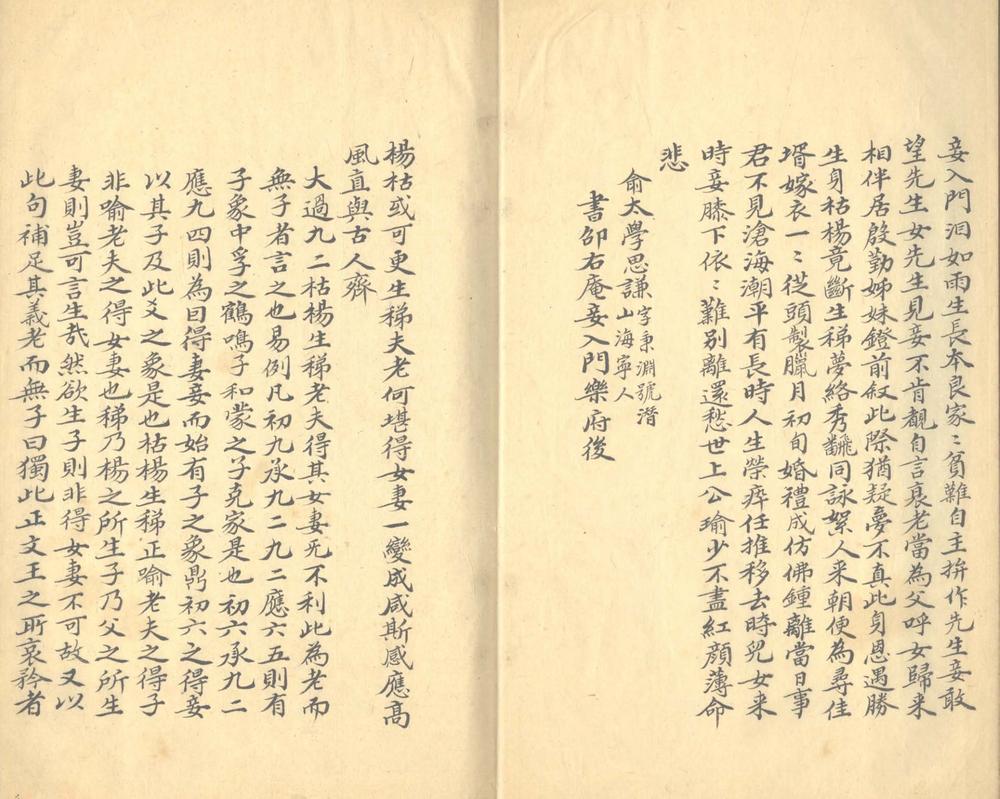 妾入門泪如雨生長本良家〻貧難自主拚作先生妾敢
望先生女先生見妾不肯覯自言衰老當為父呼女歸来
相伴居殷勤姊妹鐙前敘此際猶疑夢不真此身恩遇勝
生身枯楊竟斷生稊夢絡秀翻同詠絮人来朝便為尋佳
壻嫁衣一〻從頭製臘月初旬婚禮成仿佛鍾離當日事
君不見滄海潮平有長時人生榮瘁任推移去時兒女来
時妾膝下依〻難別離還愁世上公瑜少不盡紅顏薄命
悲
俞太學思謙字秉淵號潛
山海寧人
書邵右庵妾入門樂府後
楊枯或可更生稊夫老何堪得女妻一變成咸斯感應高
風直與古人齊
大過九二枯楊生稊老夫得其女妻旡不利此為老而
無子者言之也易例凡初九承九二九二應六五則有
子象中孚之鶴鳴子和蒙之子克家是也初六承九二
應九四則為曰得妻妾而始有子之象鼎初六之得妾
以其子及此爻之象是也枯楊生稊正喻老夫之得子
非喻老夫之得女妻也稊乃楊之所生子乃父之所生
妻則豈可言生哉然欲生子則非得女妻不可故又以
此句補足其義老而無子曰獨此正文王之所哀矜者